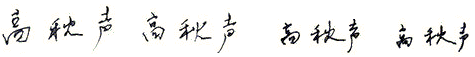 高秋声 高秋声 高秋声 高秋声